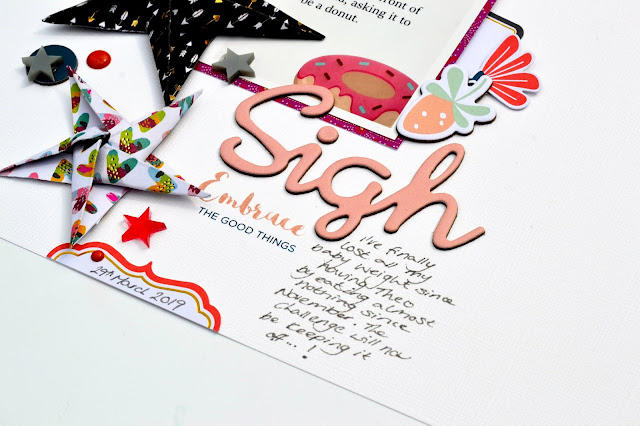 front of
, asking it to
be a donut.
Sigh
Embrace
THE GOOD THINGS
I've finally
lost all my
baby weight since
having Theo
by eating almost
nothing since
November. The
challenge will now
be keeping it
off...!
29th March 2019